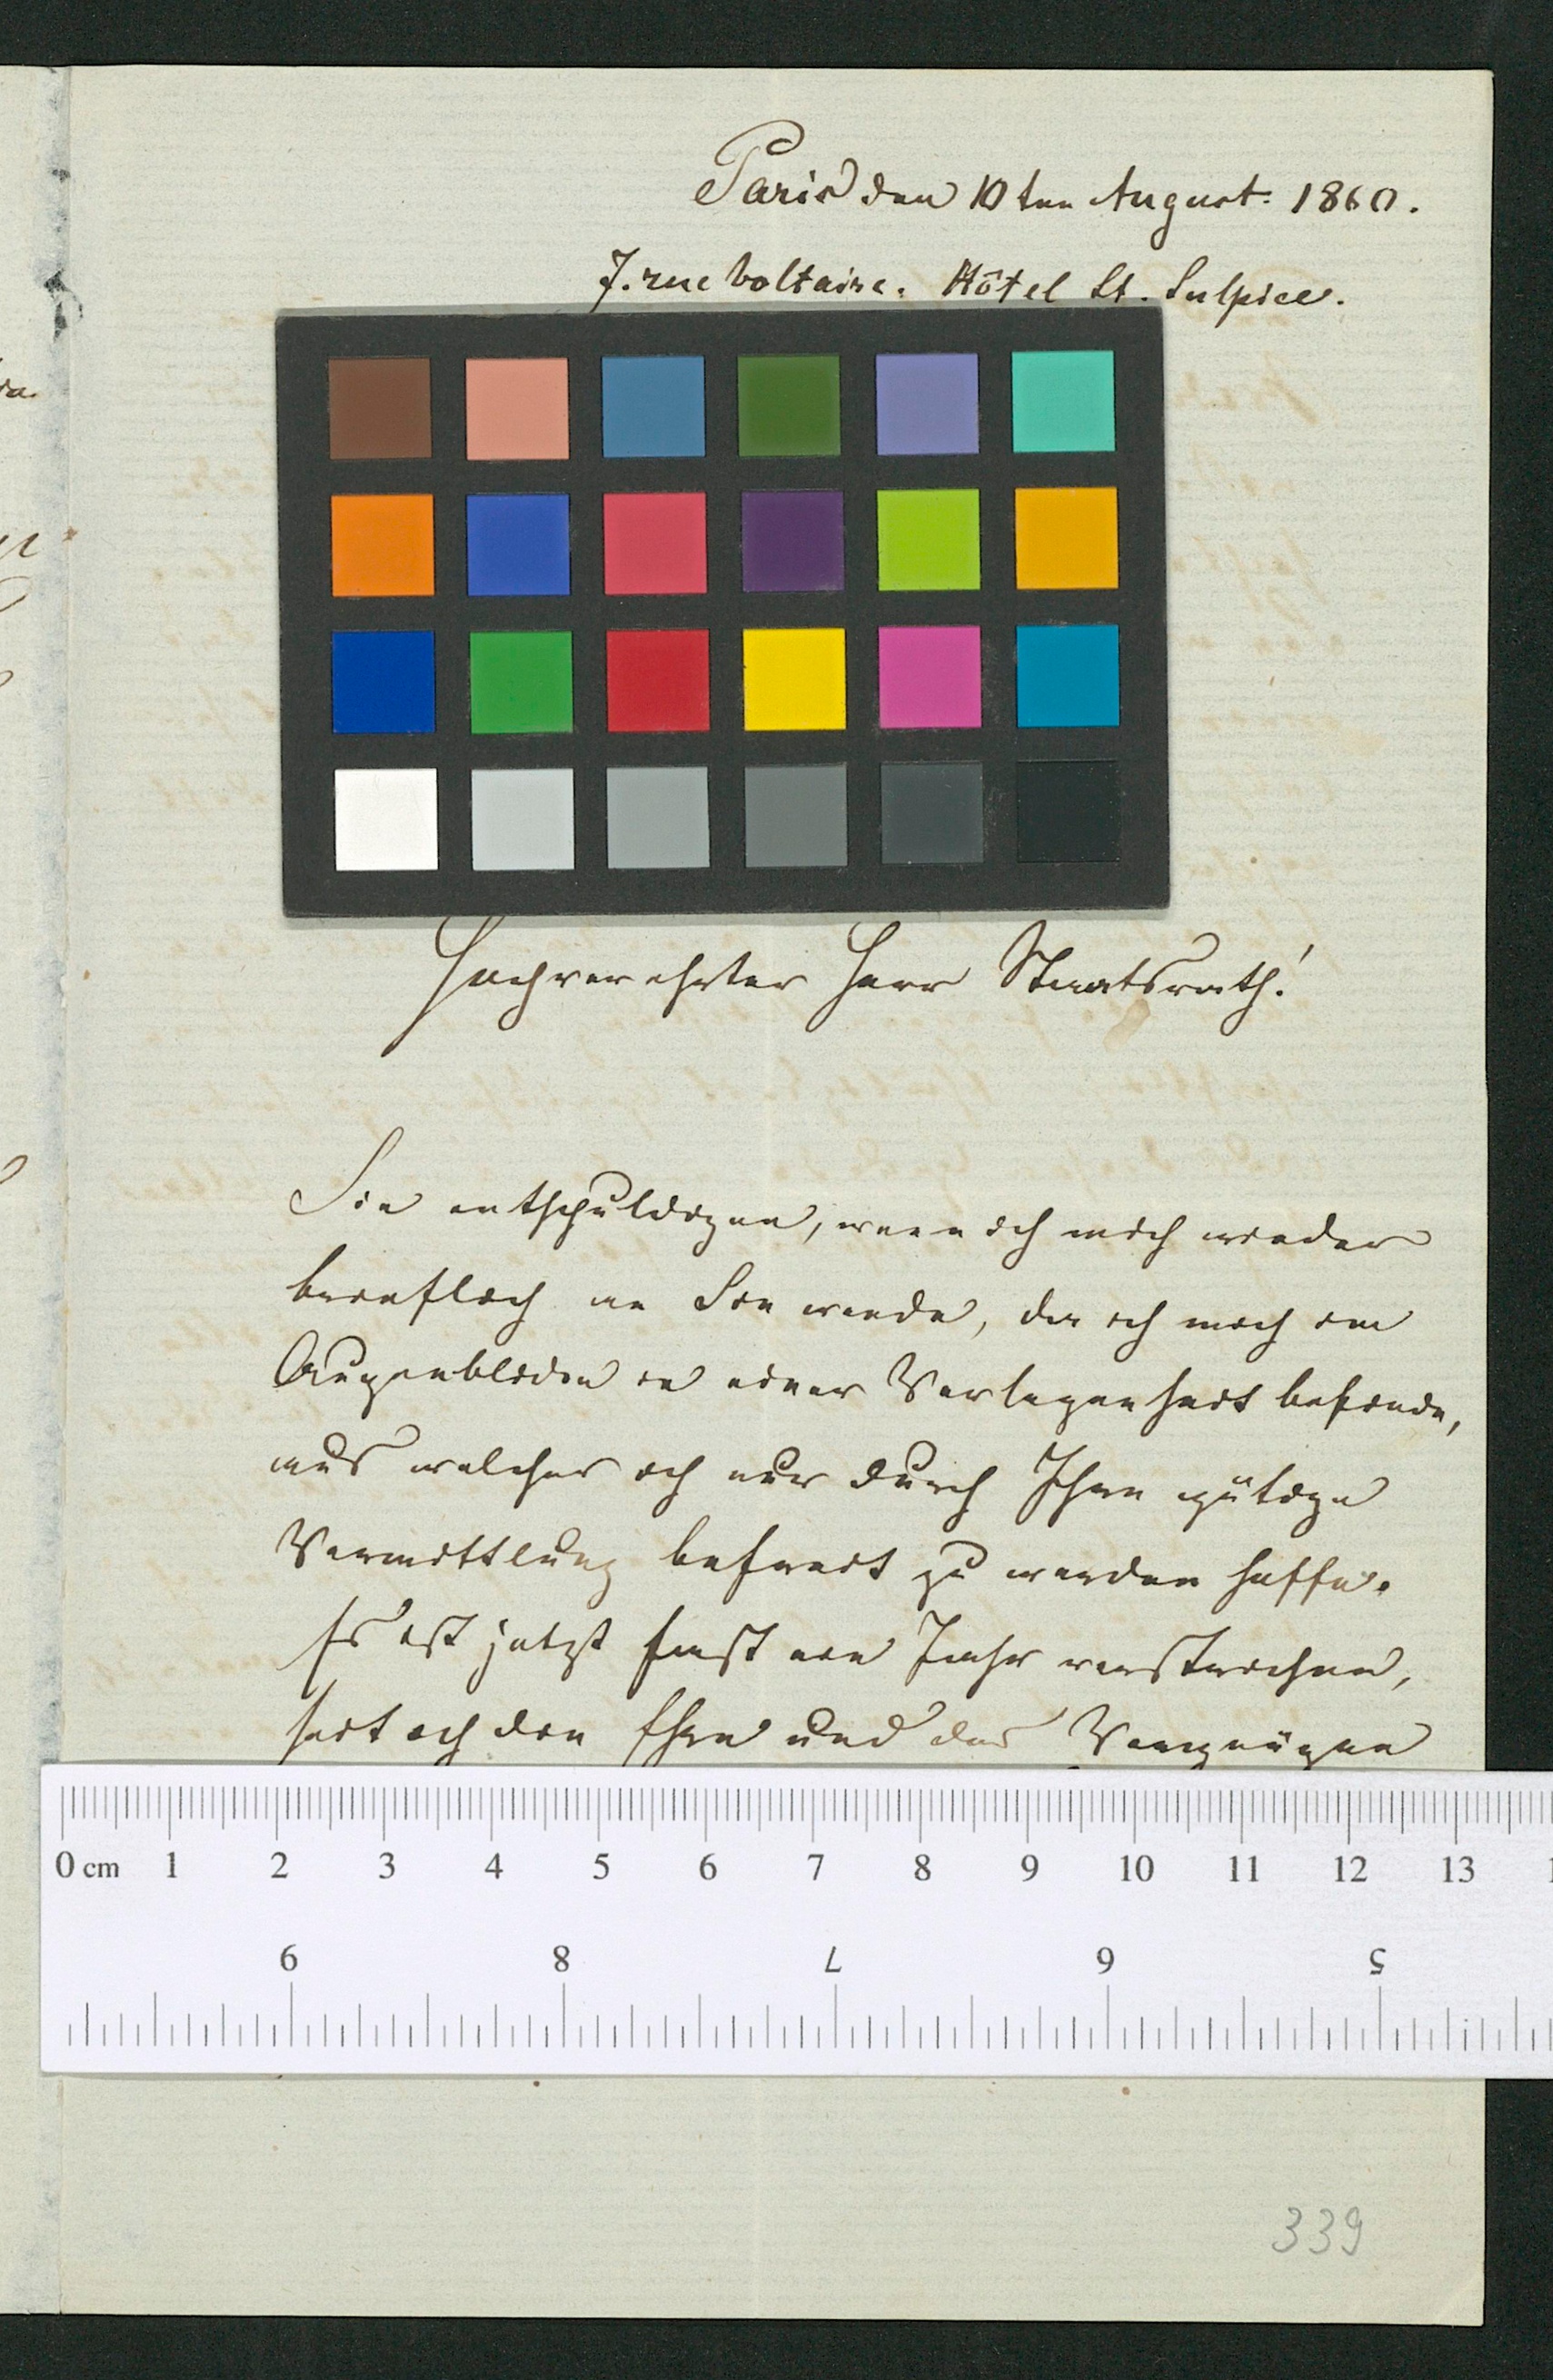 Paris den 10ten August. 1860.
7. rue Voltaire. Hôtel St. Sulpice.
Hochverehrter Herr Staatsrath!
Sie entschuldigen, wenn ich mich wieder
brieflich an Sie wende, da ich mich im
Augenblicke in einer Verlegenheit befinde,
aus welcher ich nur durch Ihre gütige
Vermittlung befreit zu werden hoffe.
Es ist jetzt fast ein Jahr verstrichen,
seit ich die Ehre und das Vergnügen
0 cm 1 2 3 4 5 6 7 8 9 10 11 12 13
9 8 7 6 5
339